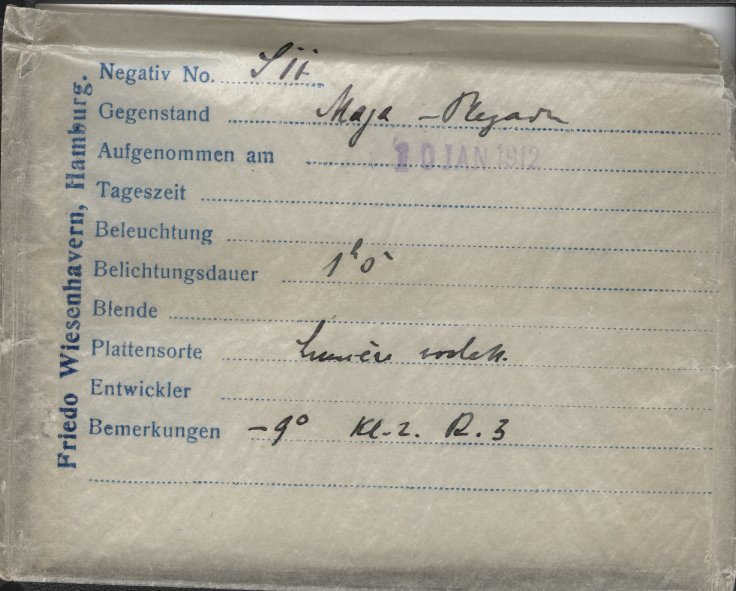 Friedo Wiesenhavern, Hamburg.
Negativ No.
Gegenstand Maja -
Aufgenommen am 10 JAN 1912
Tageszeit
Beleuchtung
Belichtungsdauer 1h
Blende
Plattensorte Lumière
Entwickler
Bemerkungen -9° Kl-2. R. 3